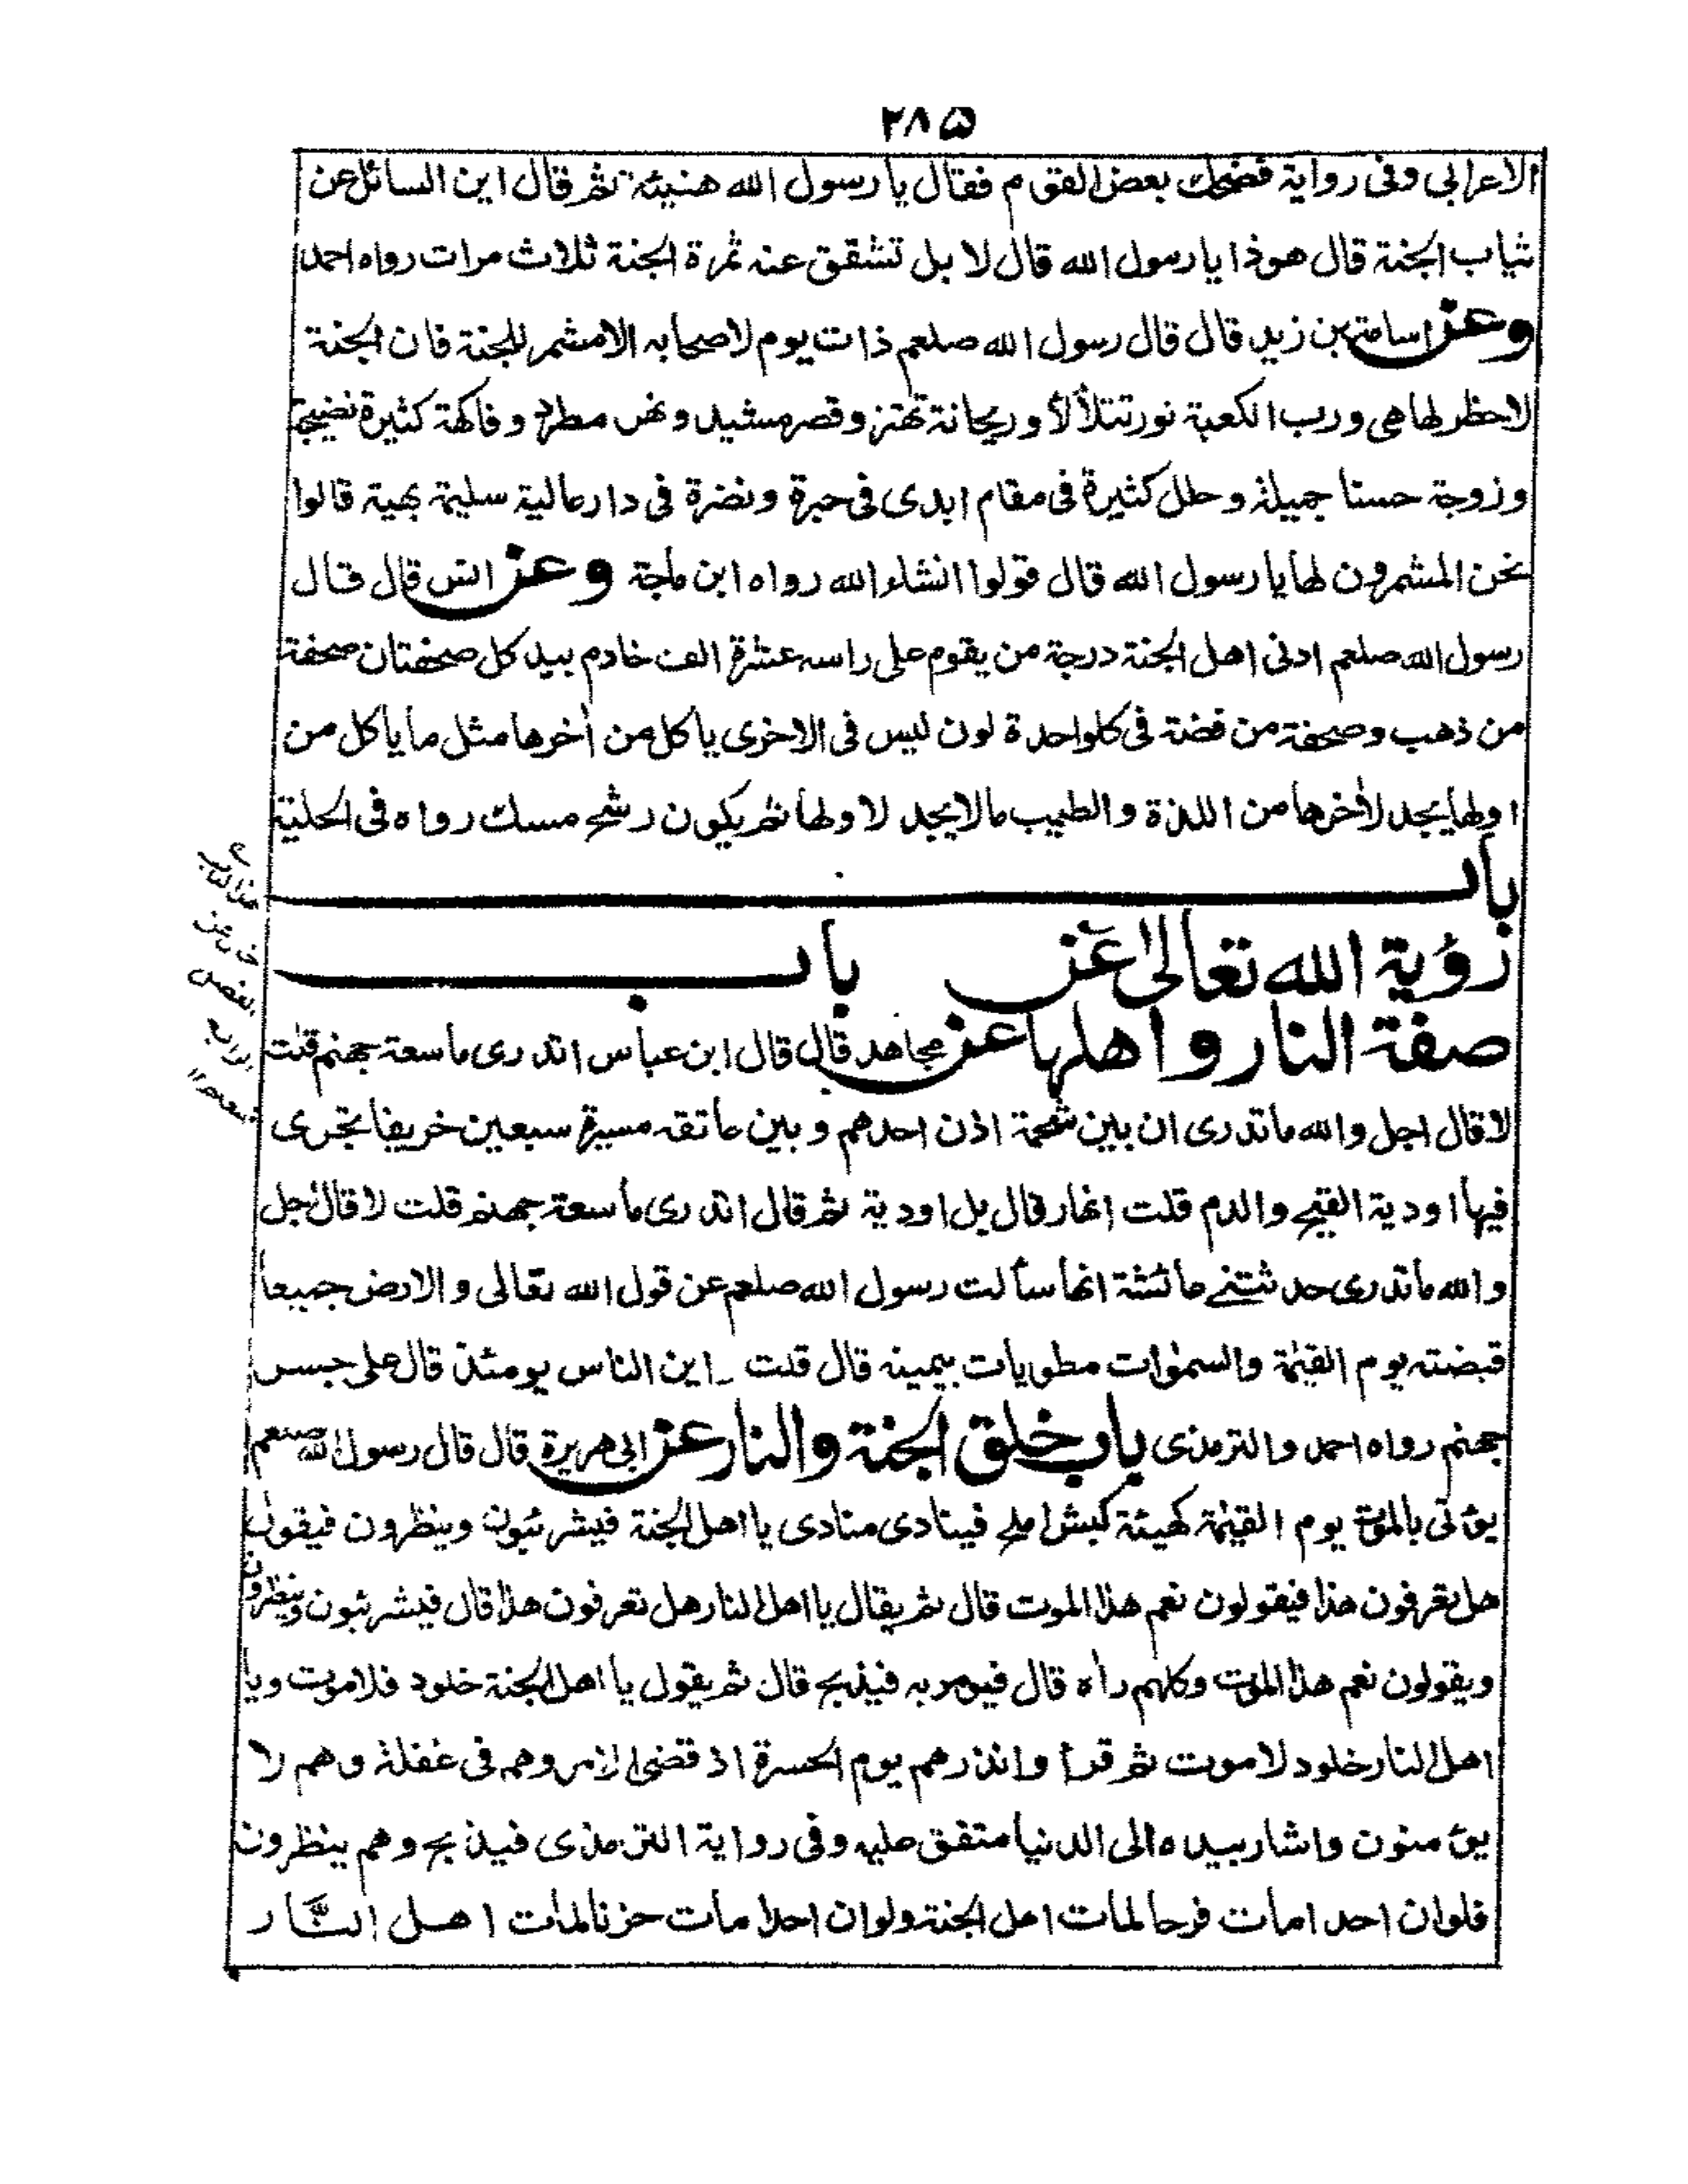 ٢٨٥
الاعرابي وفى رواية فضحك بعض القوم فقال يا رسول الله هنيئة ثم قال اين السائل عن
ثياب الجنة قال هوذا يا رسول الله قال لا بل تشقق عنه ثمرة الجنة ثلاث مرات رواه احمد
وعن اسامة بن زيد قال قال رسول الله صلعم ذات يوم لاصحابه الا مشمر للجنة فان الجنة
لاحظر لها هى ورب الكعبة نور تتلألأ وريحانة تهتز وقصر مشيد ونهر مطرد وفاكهة كثيرة نضيجة
وزوجة حسنا جميلة وحلل كثيرة فى مقام ابدى فى حبرة ونضرة فى دار عالية سليمة بهية قالوا
نحن المشمرون لها يا رسول الله قال قولوا انشاء الله رواه ابن ماجة وعن انس قال قال
رسول الله صلعم ادنى اهل الجنة درجة من يقوم على راسه عشرة الف خادم بيد كل صحفتان صحفة
من ذهب وصحفة من فضة فى كلواحدة لون ليس فى الاخرى ياكل من أخرها مثل ما ياكل من
اولها يجد لأخرها من اللذة والطيب مالا يجد لاولها ثم يكون رشح مسك رواه فى الحلية
باب
رؤية الله تعالى عن باب
صفة النار واهلها عن مجاهد قال قال ابن عباس اتدرى ما سعة جهنم قلت
لا قال اجل والله ما تدرى ان بين شحمة اذن احدهم وبين عاتقه مسيرة سبعين خريفا تجرى
فيها اودية القيح والدم قلت انهار قال بل اودية ثم قال اتدرى ما سعة جهنم قلت لا قال اجل
والله ما تدرى حدثتنے عائشة انها سألت رسول الله صلعم عن قول الله تعالى والارض جميعا
قبضته يوم القيمة والسموات مطويات بيمينه قال قلت اين الناس يومئذ قال على جسر
جهنم رواه احمد والترمذى باب خلق الجنة والنار عن ابى هريرة قال قال رسول الله صلعم
يؤتى بالموت يوم القيمة كهيئة كبش املح فينادى منادى يا اهل الجنة فيشرئبون وينظرون فيقول
هل تعرفون هذا فيقولون نعم هذا الموت قال ثم يقال يا اهل النار هل تعرفون هذا قال فيشرئبون وينظرون
ويقولون نعم هذا الموت وكلهم رأه قال فيومر به فيذبح قال ثم يقول يا اهل الجنة خلود فلا موت ويا
اهل النار خلود لا موت ثم قرأ وانذرهم يوم الحسرة اذ قضى الامر وهم فى غفلة وهم لا
يؤمنون واشار بيده الى الدنيا متفق عليه وفى رواية الترمذى فيذبح وهم ينظرون
فلو ان احدا مات فرحا لمات اهل الجنة ولو ان احدا مات حزنا لمات اهل النار